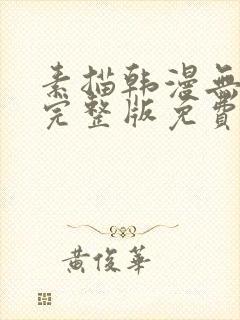 素描韩漫無
完整版免費
黃俊華